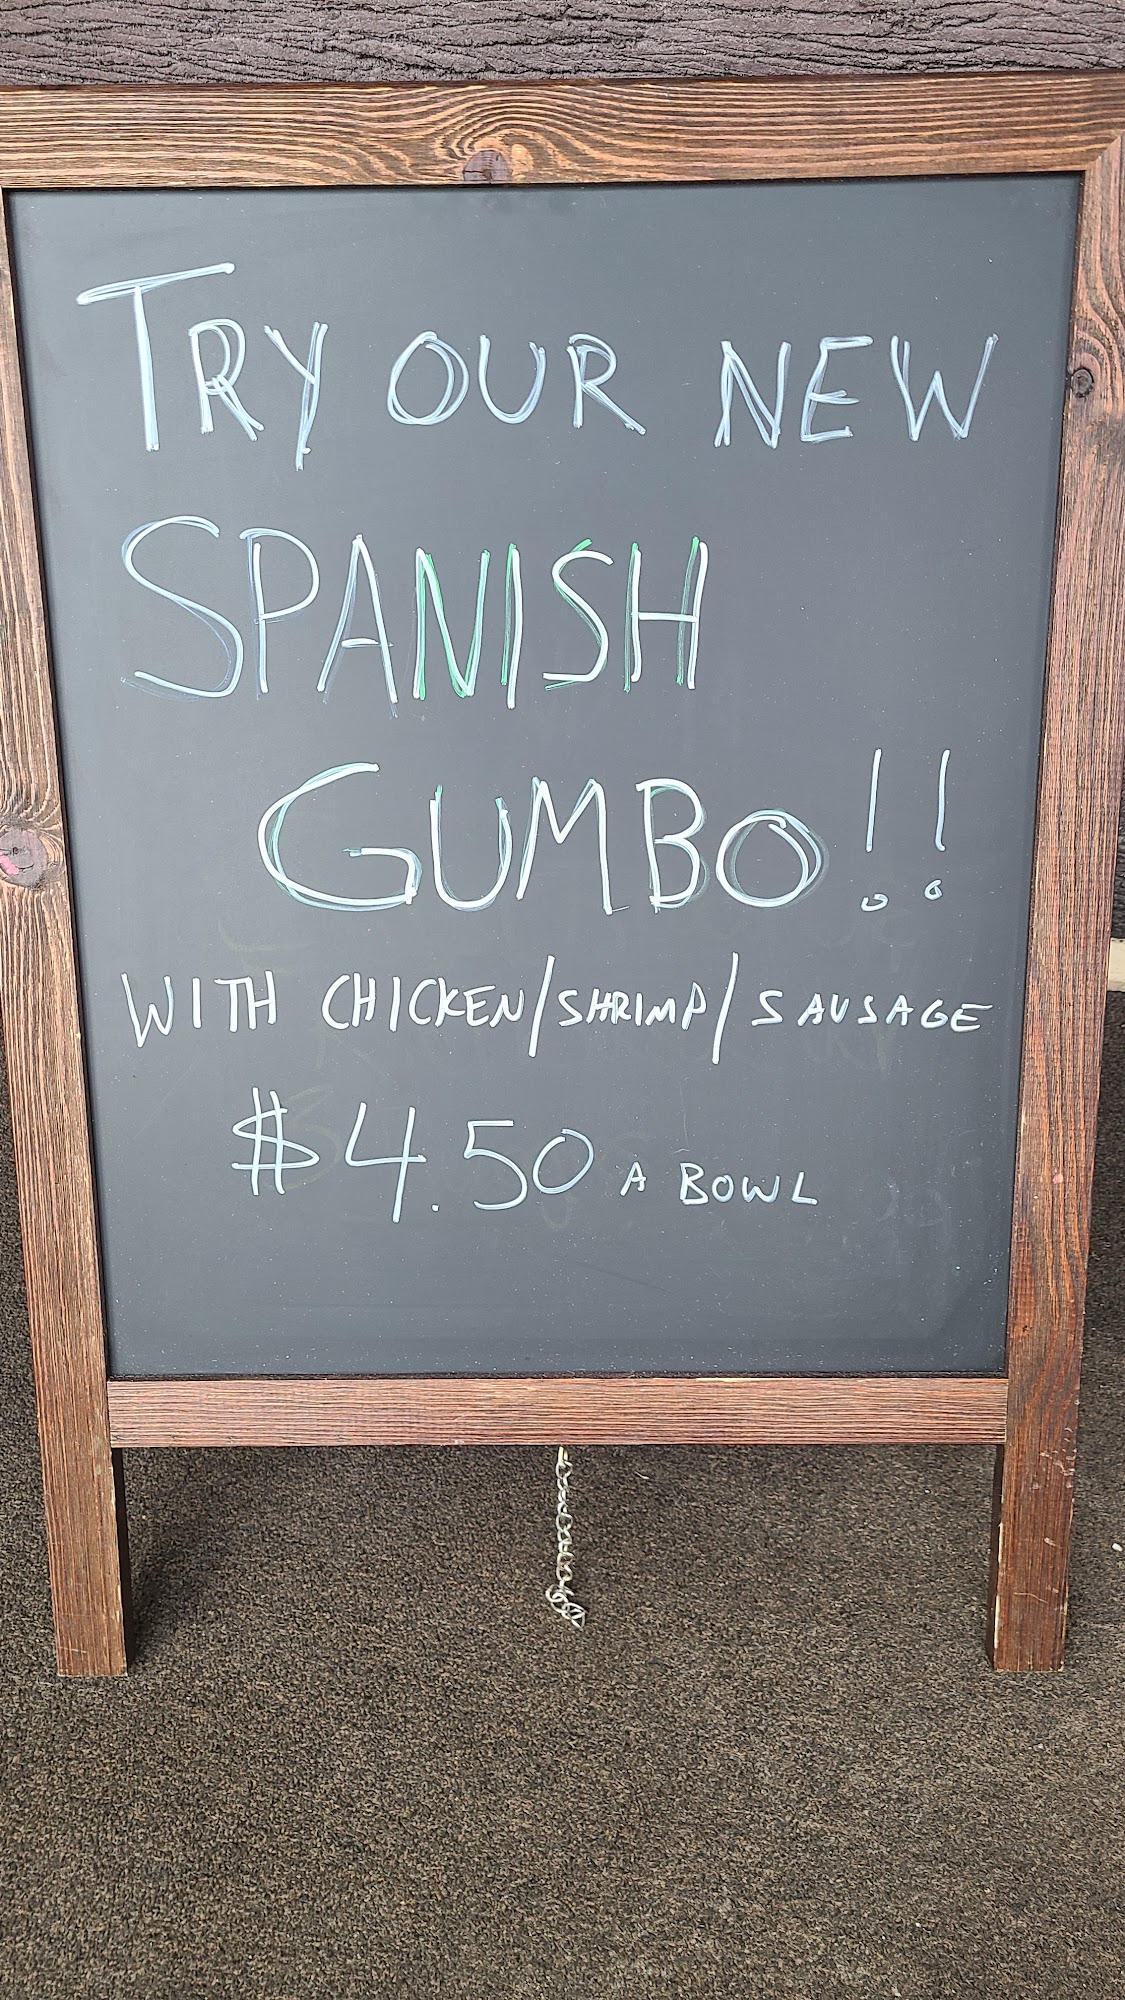 TRY OUR NEW
SPANISH
GUMBO!!
WITH CHICKEN/SHRIMP/SAUSAGE
$4.50 A BOWL